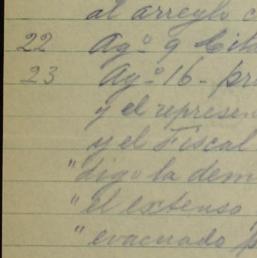 al arreglo c
22 Agº 9 Cita
23 Agº 16 - pre
y el represen
y el Fiscal
"digo la dem
"el extenso
"evacuado p